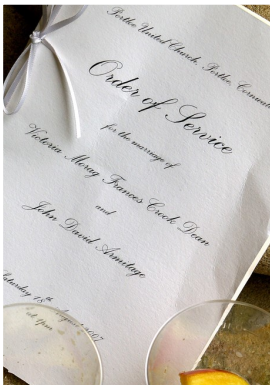 United Church, Porthe, Cornwall
Order of Service
for the marriage of
Victoria Morag Frances Crook Dean
and
John David Armitage
Saturday 18th